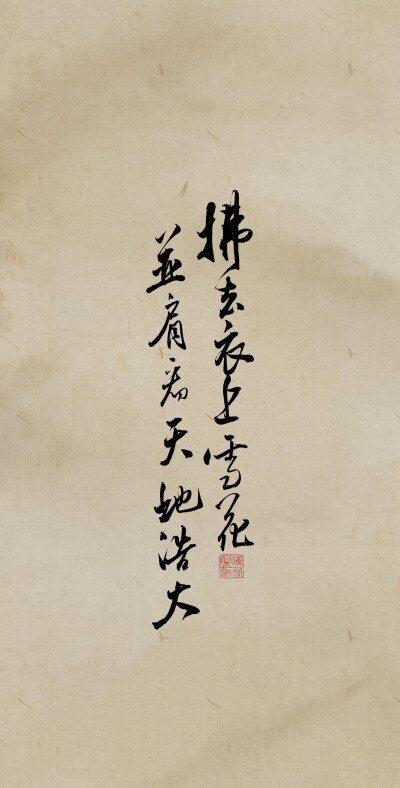 拂去衣上雪花
並肩看天地浩大